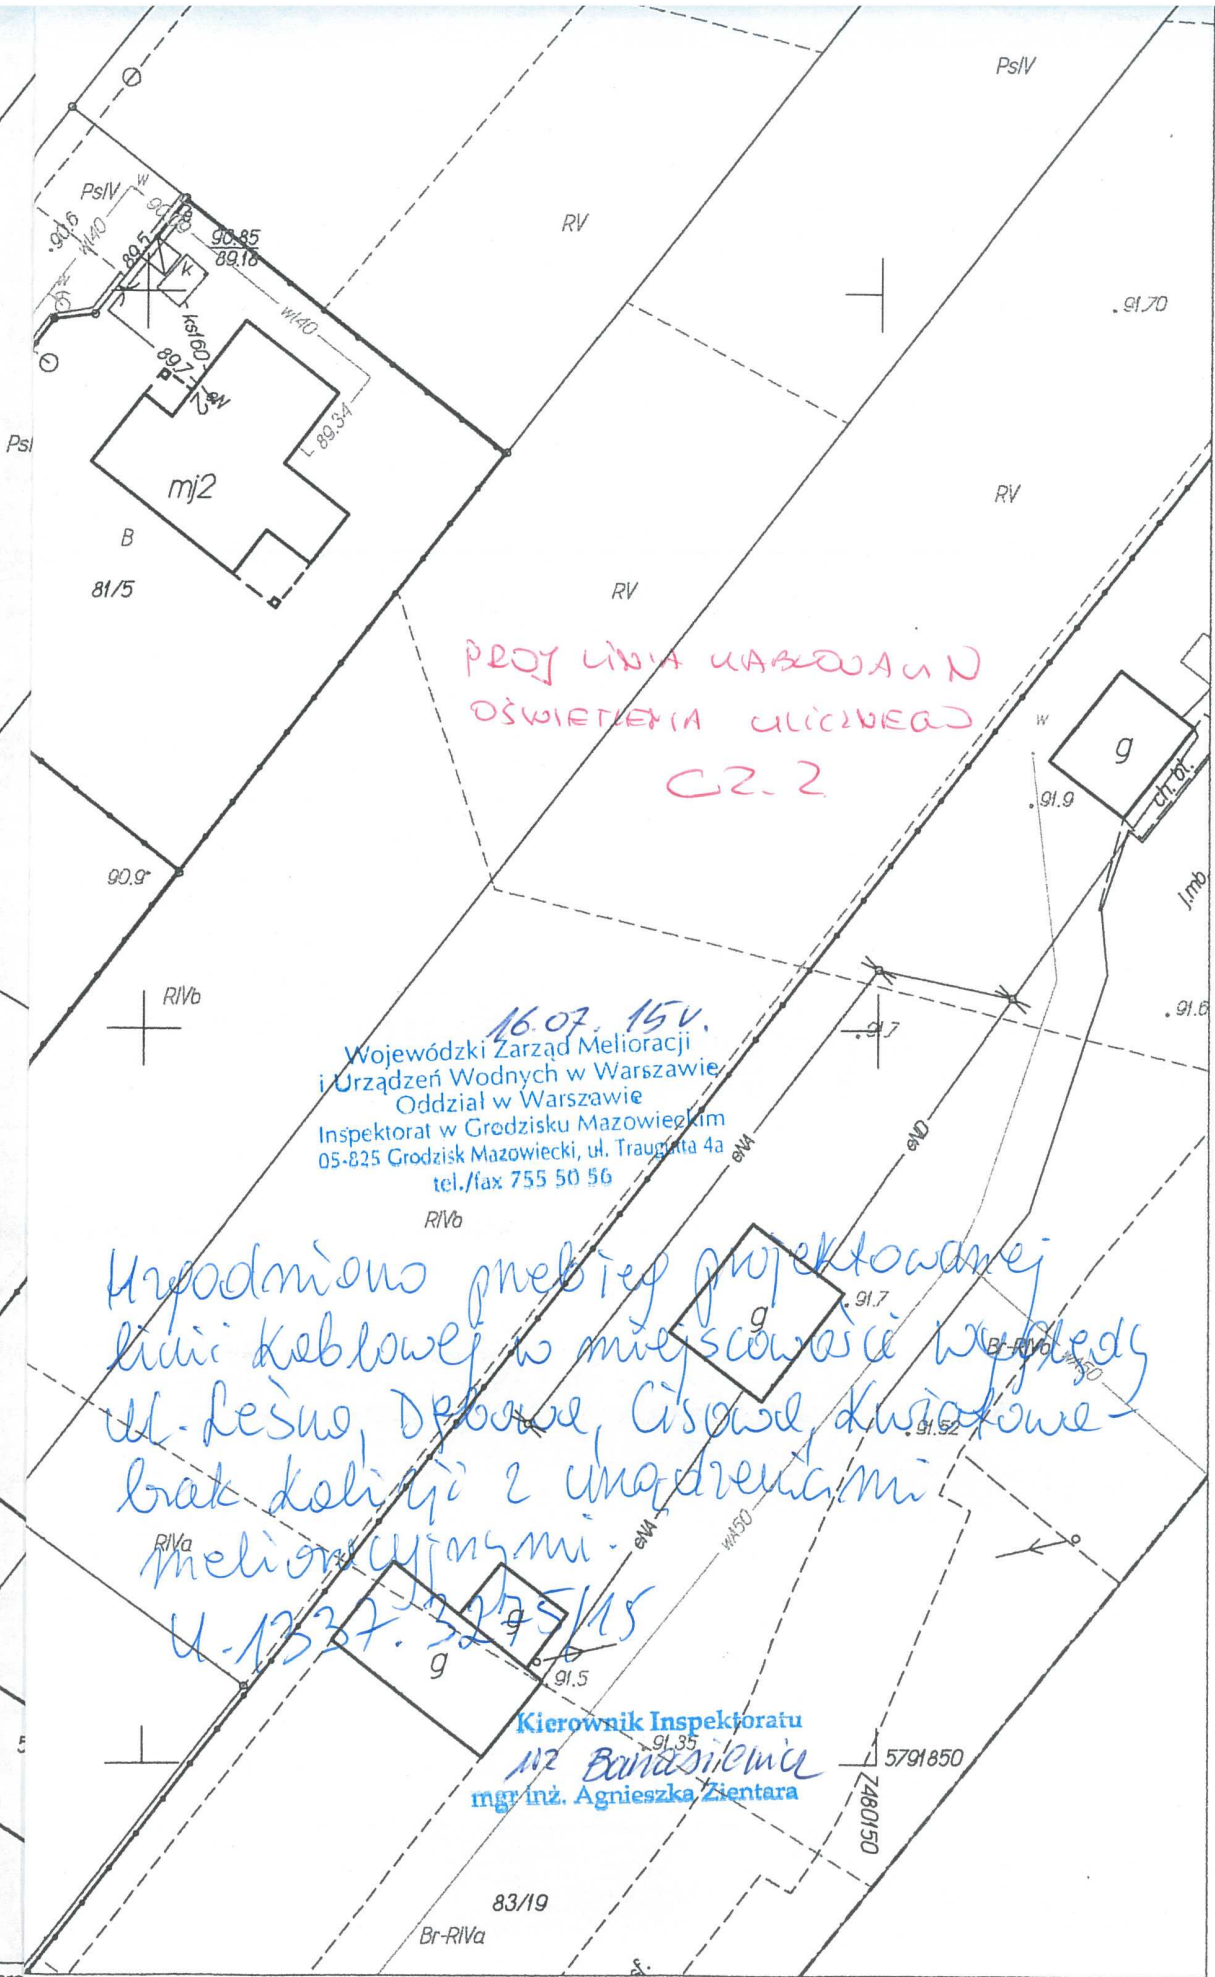 PsIV
PsIV
w
90.6
wł40
90.85
89.18
89.5
k
RV
wł40
ks160
89.7
91.70
L 89.34
PsI
mj2
RV
B
81/5
RV
PROJ LINIA KABLOWA nN
OŚWIETLENIA ULICZNEGO
CZ. 2
w
g
ch. bt.
91.9
90.9
j.mb.
RIVb
91.6
91.7
16.07. 15r.
Wojewódzki Zarząd Melioracji
i Urządzeń Wodnych w Warszawie
Oddział w Warszawie
Inspektorat w Grodzisku Mazowieckim
05-825 Grodzisk Mazowiecki, ul. Traugutta 4a
tel./fax 755 50 56
eNA
eND
RIVb
Uzgodniono przebieg projektowanej
linii kablowej w miejscowości Wyględy
ul. Leśna, Dębowa, Cisowa, Kwiatowa -
brak kolizji z urządzeniami
melioracyjnymi.
U-1337.3275/15
g
91.7
Br-RIVb
wA50
91.52
RIVa
eNA
wA50
g
g
91.5
Kierownik Inspektoratu
wz Banasiewicz
mgr inż. Agnieszka Zientara
91.35
5791850
7480150
5
83/19
Br-RIVa